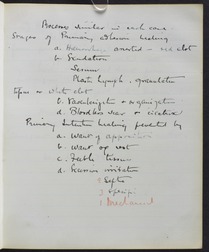 Processes similar in each case
Stages of Primary adhesive healing
a. Haemorrhage arrested - red clot
b. Exudation
Serum
Plastic lymph, granulation
tissue or white clot
c. Vascularization & organization
d. Bloodless scar or cicatrix
Primary Intention healing prevented by
a. Want of apposition
b. Want of rest
c. Feeble tissue
d. Excess irritation
1 Septic
2 Specific
3 Mechanical